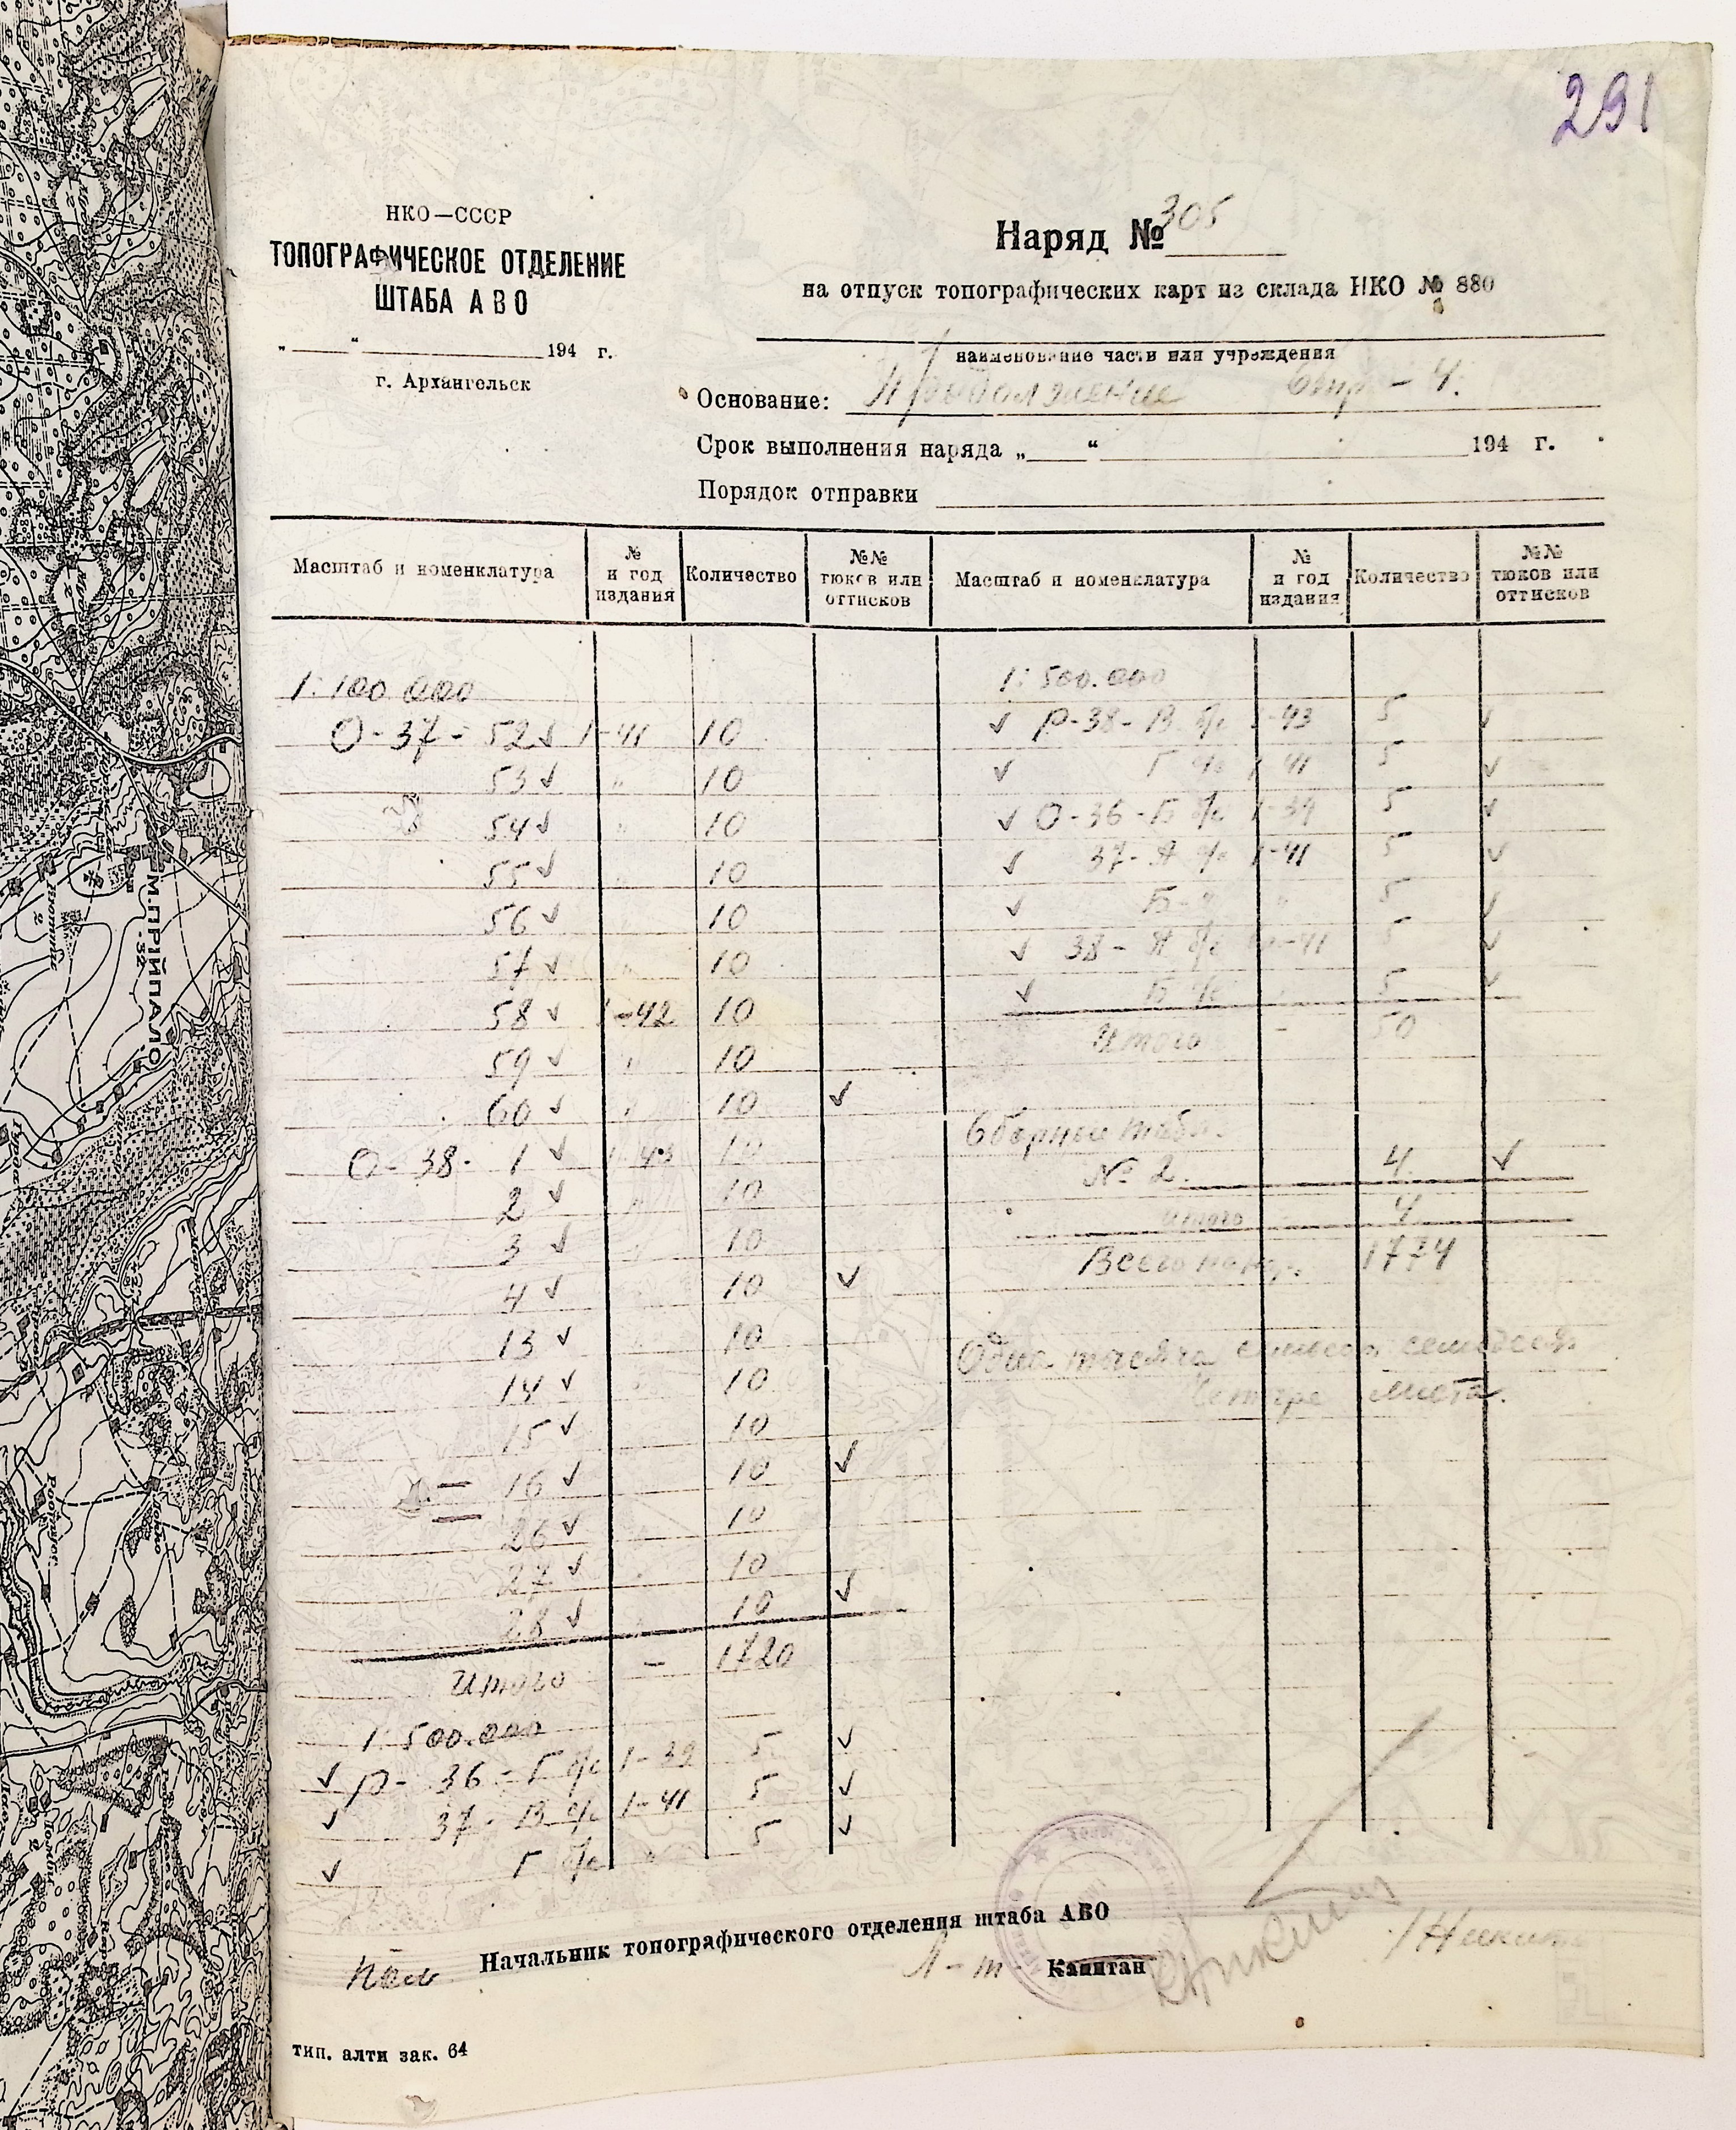 291
НКО—СССР
ТОПОГРАФИЧЕСКОЕ ОТДЕЛЕНИЕ
ШТАБА АВО
„ “ 194 г.
г. Архангельск
Наряд № 305
на отпуск топографических карт из склада НКО № 880
наименование части или учреждения
Основание: Продолжение Стр - 4.
Срок выполнения наряда „ “ 194 г.
Порядок отправки
Масштаб и номенклатура № и год издания Количество №№ тюков или оттисков Масштаб и номенклатура № и год издания Количество №№ тюков или оттисков
1:100.000
О-37-52 ✓ 1-41 10
53 ✓ " 10
54 ✓ " 10
55 ✓ " 10
56 ✓ " 10
57 ✓ " 10
58 ✓ 1-42 10
59 ✓ " 10
60 ✓ " 10 ✓
О-38- 1 ✓ 43 10
2 ✓ " 10
3 ✓ " 10
4 ✓ " 10 ✓
13 ✓ " 10
14 ✓ " 10
15 ✓ 10
16 ✓ 10 ✓
26 ✓ 10
27 ✓ 10
28 ✓ 10 ✓
Итого - 1720
1:500.000
✓ Р-36-Г б/с 1-39 5 ✓
✓ 37-В б/с 1-41 5 ✓
✓ Г б/с " 5 ✓
1:500.000
✓ Р-38-В б/с 1-43 5 ✓
✓ Г б/с 1-41 5 ✓
✓ О-36-Б б/с 1-39 5 ✓
✓ 37-А б/с 1-41 5 ✓
✓ Б-" " 5 ✓
✓ 38-А б/с -41 5 ✓
✓ Б б/с " 5 ✓
Итого - 50
Сборные табл.
№ 2. 4 ✓
итого - 4
Всего по нар. 1774
Одна тысяча семьсот семьдесят
четыре листа.
Начальник топографического отделения штаба АВО
Л-т Капитан
тип. алти зак. 64
М.ПРІЙПАЛО